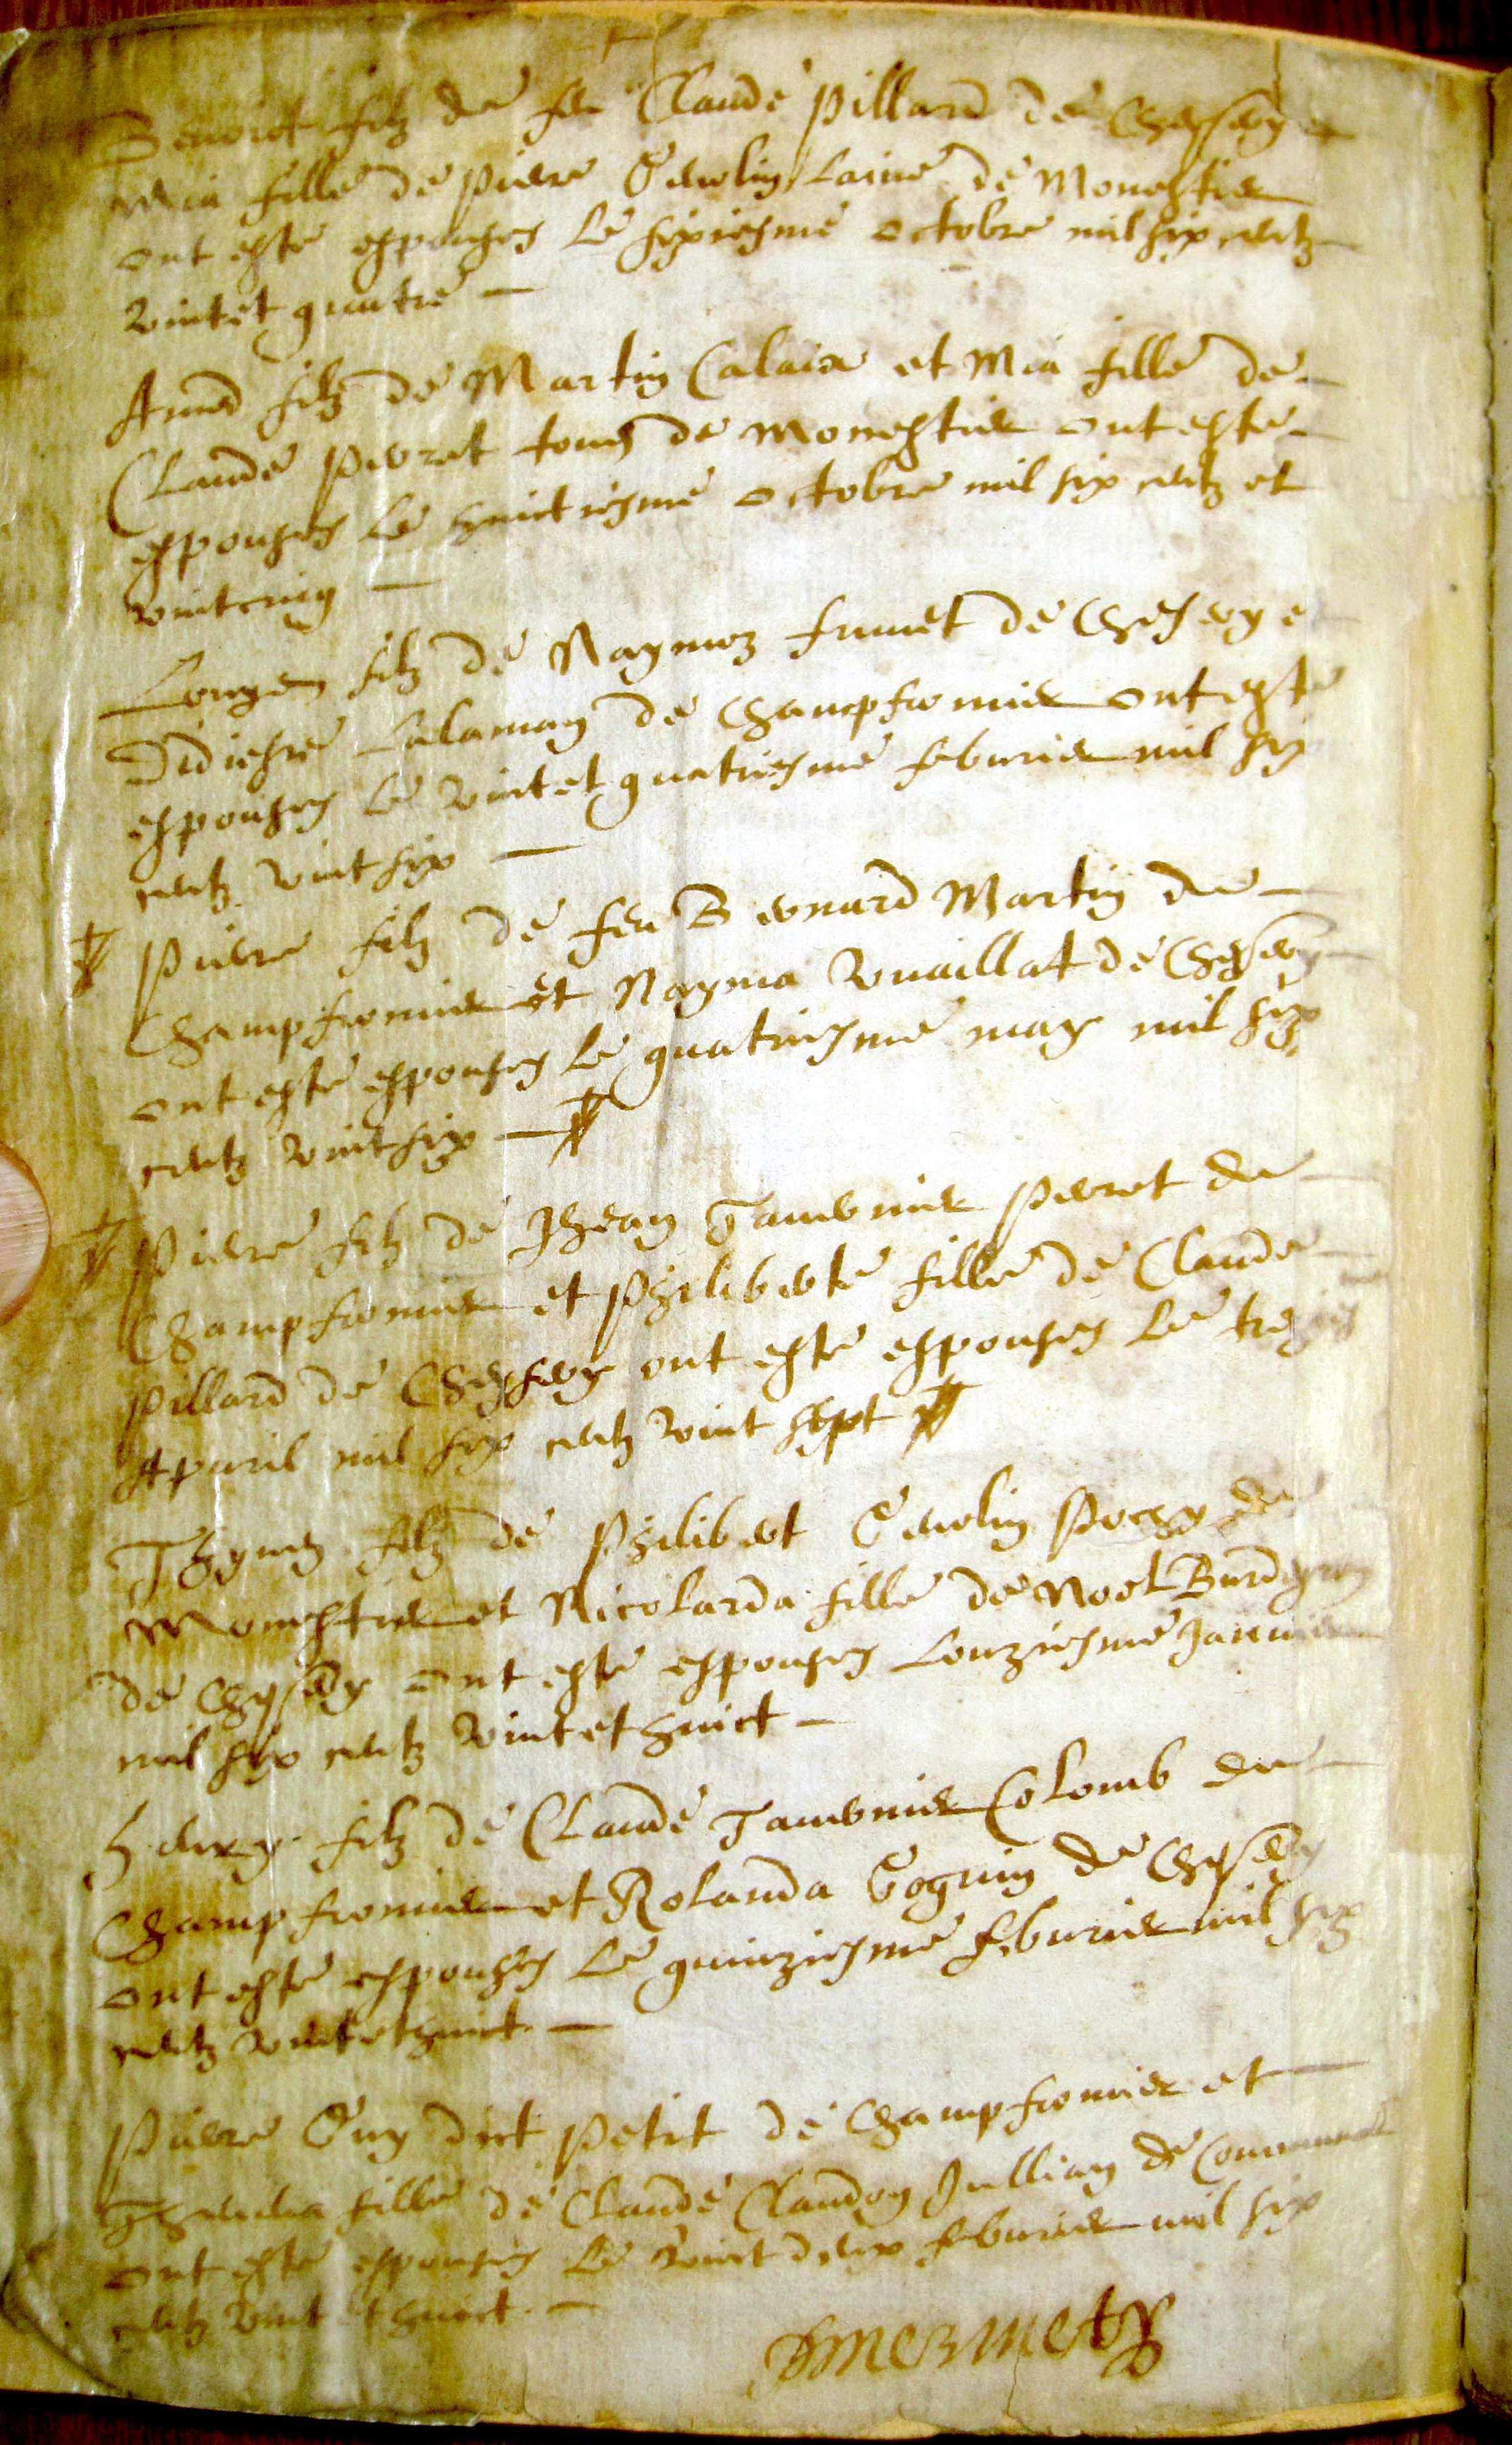 Benoict filz de feu Claude Pillard de Chesery et
Mia fille de Pierre Genolin laine de Monestier
ont esté espouses le sixiesme octobre mil six centz
vint et quatre
Amed filz de Martin Calaix et Mia fille de
Claude Perret tous de Monestier ont esté
espouses le huictiesme octobre mil six centz et
vintcinq
filz de Raymoz Fumet de Chesery et
Didiere de Champfromier ont esté
espouses le vint et quatriesme feburier mil six
centz vint six
Pierre filz de feu Bernard Martin de
Champfromier et Rayma Vuaillat de Chesery
ont esté espouses le quatriesme may mil six
centz vint six
Pierre filz de Jhean Tavernier Perret de
Champfromier et Philiberte fille de Claude
Pillard de Chesery ont esté espouses le
Apvril mil six centz vint sept
Thyven filz de Philibert Genolin Pochy de
Monestier et Nicolarda fille de Noel
de Chesery ont esté espouses lonziesme Januier
mil six centz vint et huict
Henry filz de Claude Tavernier Colomb de
Champfromier et Rolanda Goguin de Chesery
ont esté espouses le quinziesme feburier mil six
centz vint et huict
Pierre Guy dict Petit de Champfromier et
fille de Claude Claudoy Jullian de
ont esté espouses le vint deux feburier mil six
centz vint et huict
Mermety